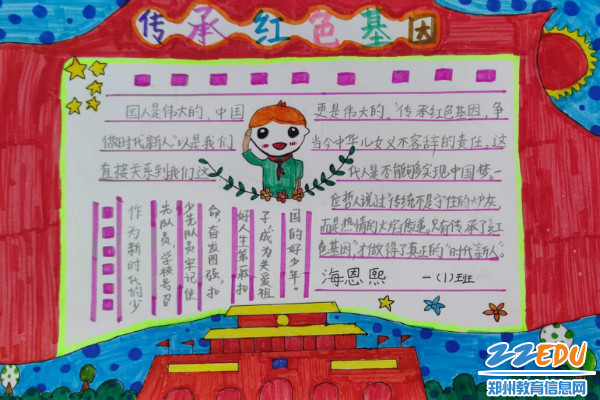 传承红色基因
国人是伟大的，中国更是伟大的。"传承红色基因，争
做时代新人"以是我们当今中华儿女义不容辞的责任。这
直接关系到我们这一代人是不能够实现中国梦。一
位哲人说过"传统不是守住的炉灰
而是热情的火焰传递。只有传承了红
色基因"才做得了真正的"时代新人"。
作为新时代的少
先队员，学校号召
少先队员牢记使
命，奋发图强，扣
好人生第一粒扣
子成为关爱祖
国的好少年。
海恩熙 一(1)班
ZZEDU
郑州教育信息网